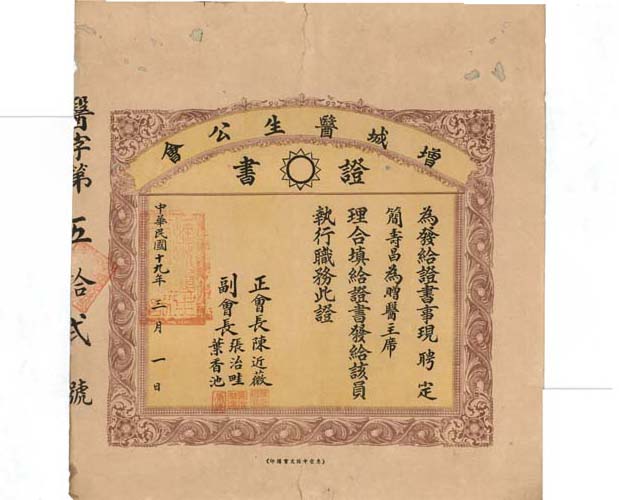 增城醫生公會
證書
為發給證書事現聘定
簡壽昌為贈醫主席
理合填給證書發給該員
執行職務此證
正會長陳近薇
副會長張治畦
葉香池
中華民國十九年三月一日
醫字第五拾弍號